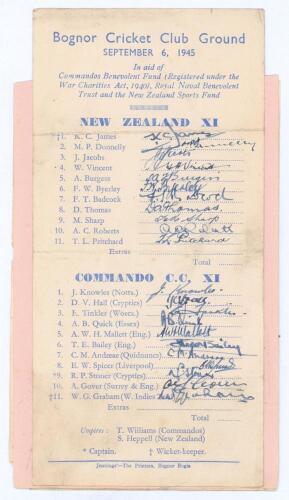 Bognor Cricket Club Ground
SEPTEMBER 6, 1945
In aid of
Commandos Benevolent Fund (Registered under the
War Charities Act, 1940), Royal Naval Benevolent
Trust and the New Zealand Sports Fund
NEW ZEALAND XI
†1. K. C. James
2. M. P. Donnelly
3. J. Jacobs
4. W. Vincent
5. A. Burgess
6. F. W. Byerley
7. F. T. Badcock
8. D. Thomas
9. M. Sharp
10. A. C. Roberts
11. T. L. Pritchard
Extras
Total
COMMANDO C.C. XI
1. J. Knowles (Notts.) J. Knowles
2. D. V. Hall (Cryptics)
3. E. Tinkler (Woecs)
4. A. B. Quick (Essex)
5. A. W. H. Mallett (Eng.) AWH Mallett
6. T. E. Bailey (Eng.) Trevor Bailey
7. C. M. Andreae (Quidnuncs)
8. E. W. Spicer (Liverpool)
*9. R. P. Stoner (Cryptics)
10. A. Gover (Surrey & Eng.)
†11. W. G. Graham (W. Indies)
Extras
Total
Umpires: T. Williams (Commandos)
S. Heppell (New Zealand)
* Captain. † Wicket-keeper.
Jennings'—The Printers, Bognor Regis